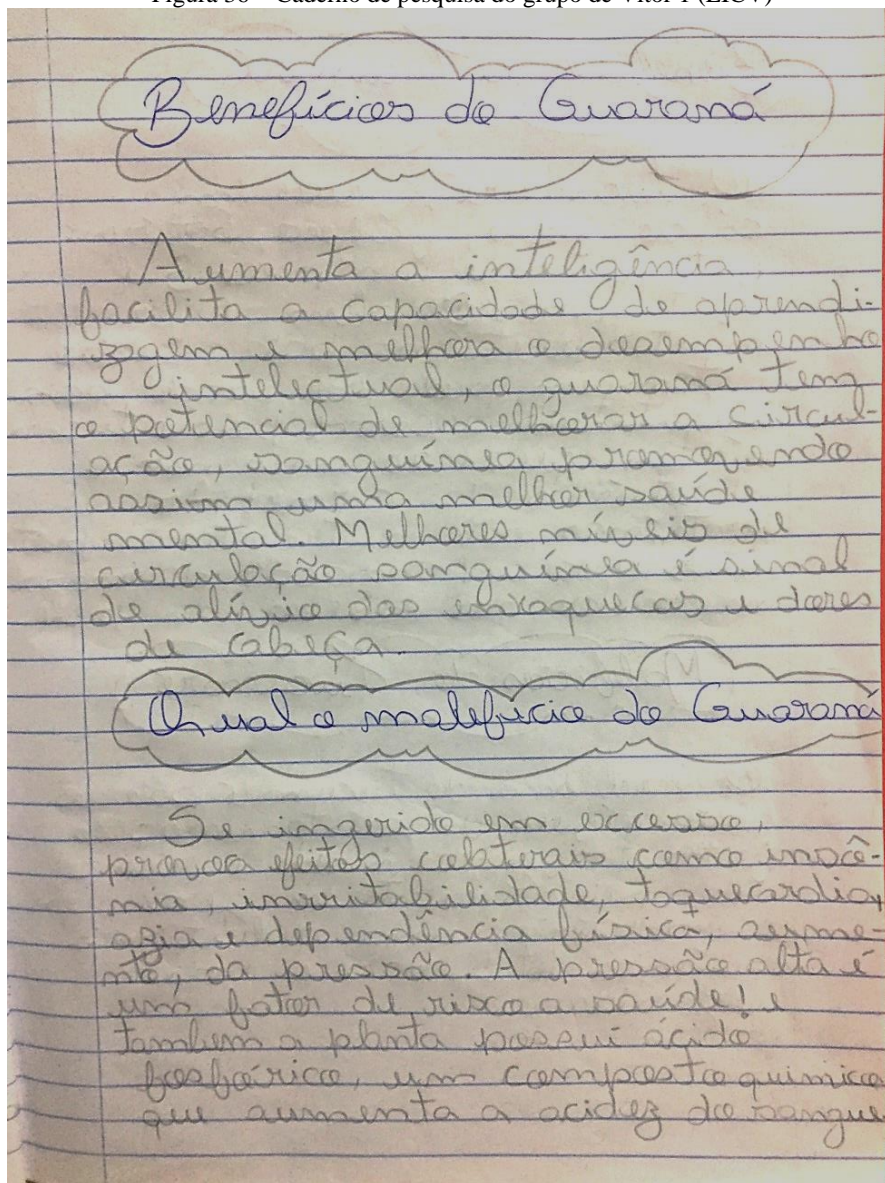 Figura 36 – Caderno de pesquisa do grupo de Vitor 1 (LICV)
Benefícios do Guaraná
Aumenta a inteligência,
facilita a capacidade de aprendi-
zagem e melhora o desempenho
intelectual, o guaraná tem
o potencial de melhorar a circul-
ação, sanguínea promovendo
assim uma melhor saúde
mental. Melhores níveis de
circulação sanguínea é sinal
de alívio das enxaquecas e dores
de cabeça.
Qual o malefício do Guaraná
Se ingerido em excesso,
provoca efeitos colaterais como insô-
nia, irritabilidade, taquecardia,
azia e dependência física, aume-
nto, da pressão. A pressão alta é
um fator de risco a saúde! e
tambem a planta possui ácido
fosfórico, um composto quimico
que aumenta a acidez do sangue